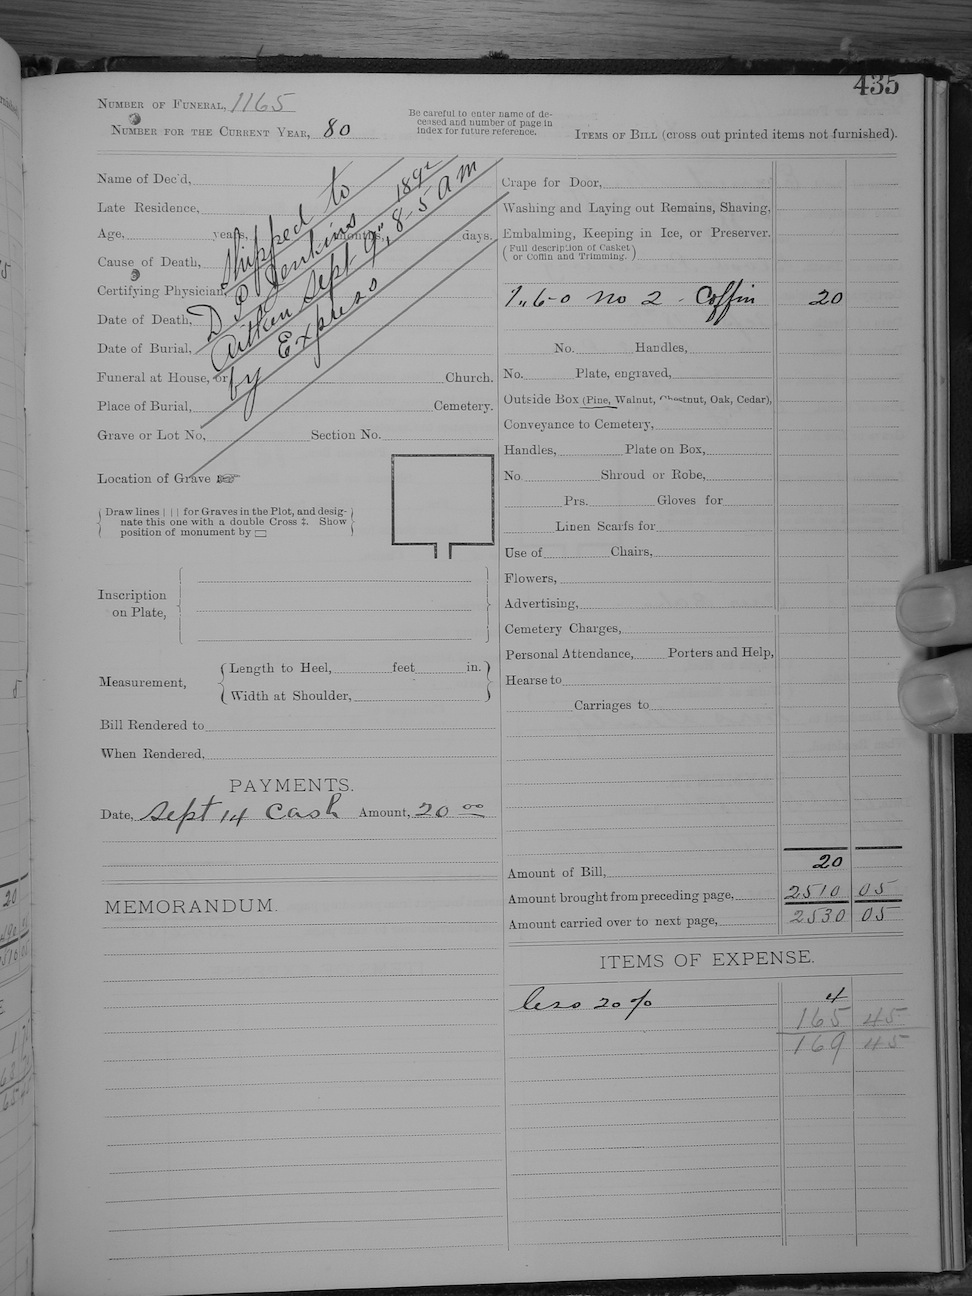 435
NUMBER OF FUNERAL, 1165
NUMBER FOR THE CURRENT YEAR, 80
Be careful to enter name of de-
ceased and number of page in
index for future reference.
ITEMS OF BILL (cross out printed items not furnished).
Name of Dec'd,
Late Residence,
Age, years, months, days.
Cause of Death,
Certifying Physician,
Date of Death,
Date of Burial,
Funeral at House, or Church.
Place of Burial, Cemetery.
Grave or Lot No, Section No.
Shipped to
D P Jenkins 1892
Aitken Sept 9", 8-5 AM
by Express
Location of Grave ☞
Draw lines | | | for Graves in the Plot, and desig-
nate this one with a double Cross ‡. Show
position of monument by ▭
Inscription
on Plate,
Measurement,
Length to Heel, feet in.
Width at Shoulder,
Bill Rendered to
When Rendered,
PAYMENTS.
Date, Sept 14 Cash Amount, 20 00
MEMORANDUM.
Crape for Door,
Washing and Laying out Remains, Shaving,
Embalming, Keeping in Ice, or Preserver.
(Full description of Casket
or Coffin and Trimming.)
1,, 6-0 no 2 - Coffin 20
No. Handles,
No. Plate, engraved,
Outside Box (Pine, Walnut, Chestnut, Oak, Cedar),
Conveyance to Cemetery,
Handles, Plate on Box,
No. Shroud or Robe,
Prs. Gloves for
Linen Scarfs for
Use of Chairs,
Flowers,
Advertising,
Cemetery Charges,
Personal Attendance, Porters and Help,
Hearse to
Carriages to
Amount of Bill, 20
Amount brought from preceding page, 2510 05
Amount carried over to next page, 2530 05
ITEMS OF EXPENSE.
less 20 % 4
165 45
169 45